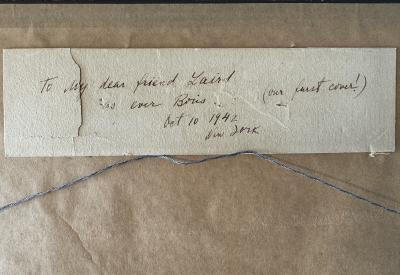 To My dear friend Laird
as ever Boris . . (our first cover!)
Oct 10 1942
New York